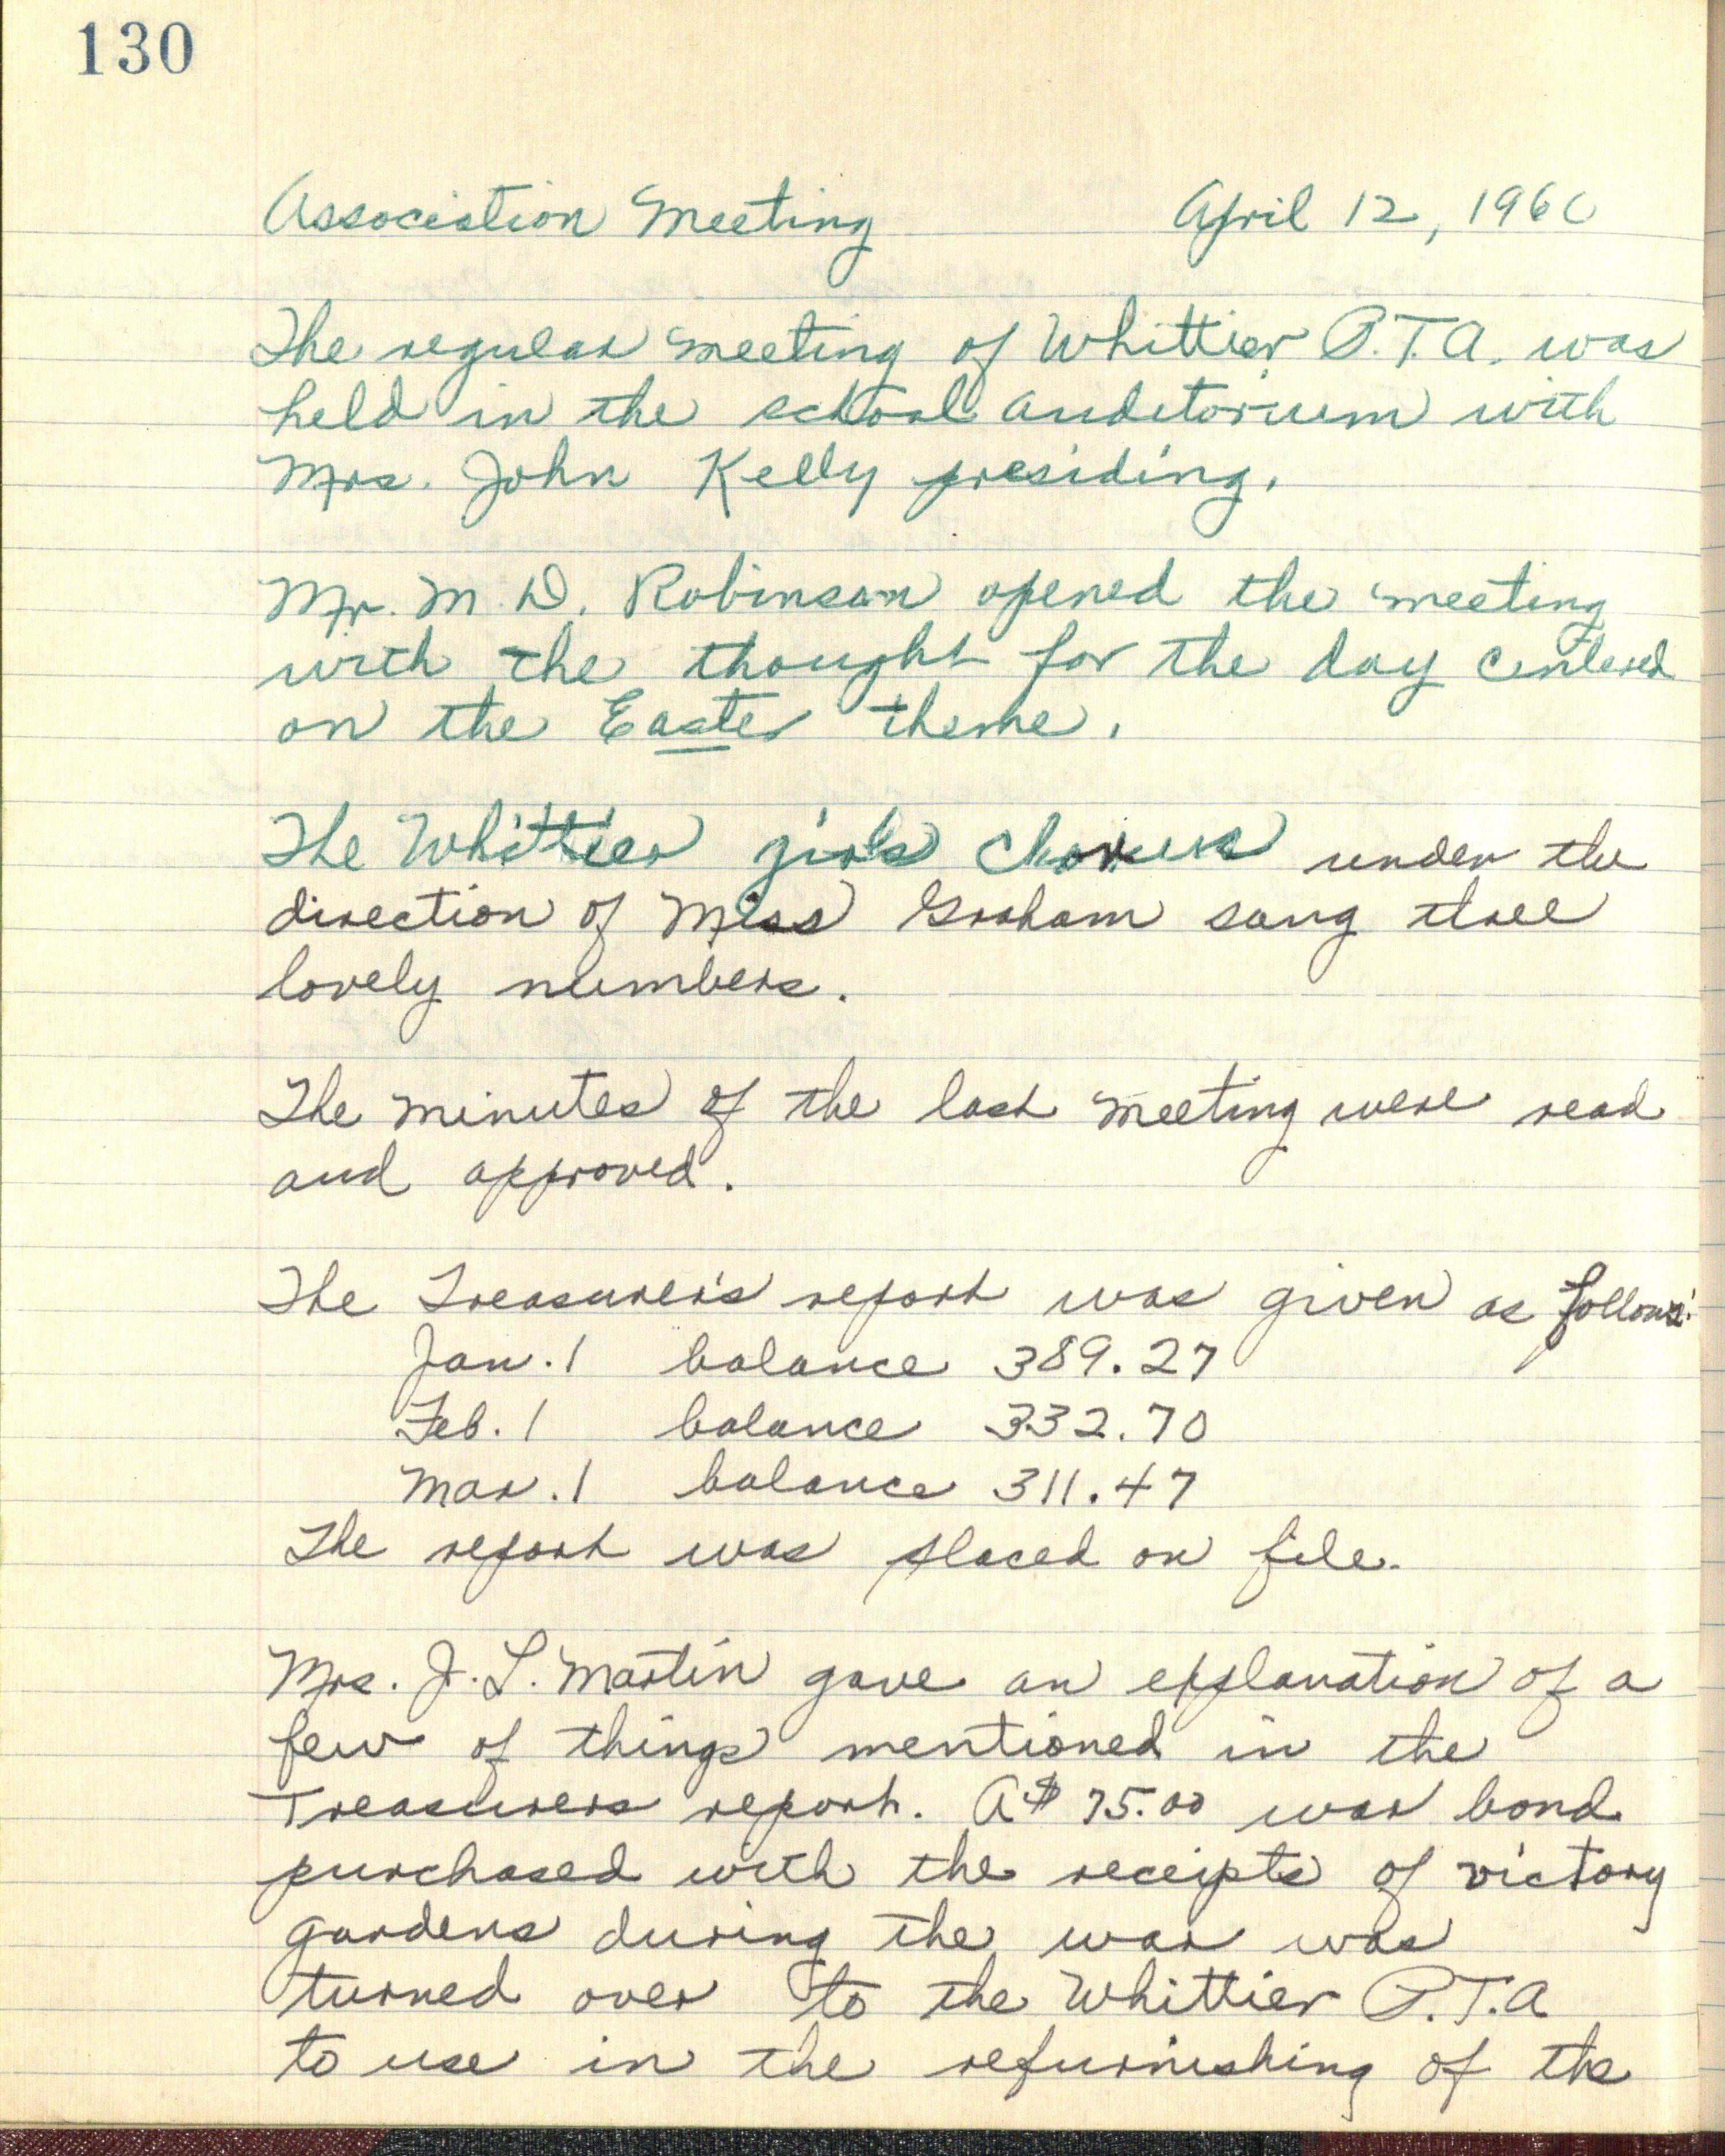 130
Association Meeting April 12, 1960
The regular meeting of Whittier P.T.A. was
held in the school auditorium with
Mrs. John Kelly presiding.
Mr. M. D. Robinson opened the meeting
with the thought for the day centered
on the Easter theme.
The Whittier girls chorus under the
direction of Miss Graham sang three
lovely numbers.
The minutes of the last meeting were read
and approved.
The Treasurer's report was given as follows:
Jan. 1 balance 389.27
Feb. 1 balance 332.70
Mar. 1 balance 311.47
The report was placed on file.
Mrs. J. L. Martin gave an explanation of a
few of things mentioned in the
Treasurers report. A $75.00 war bond
purchased with the receipts of victory
gardens during the war was
turned over to the Whittier P.T.A
to use in the refurnishing of the